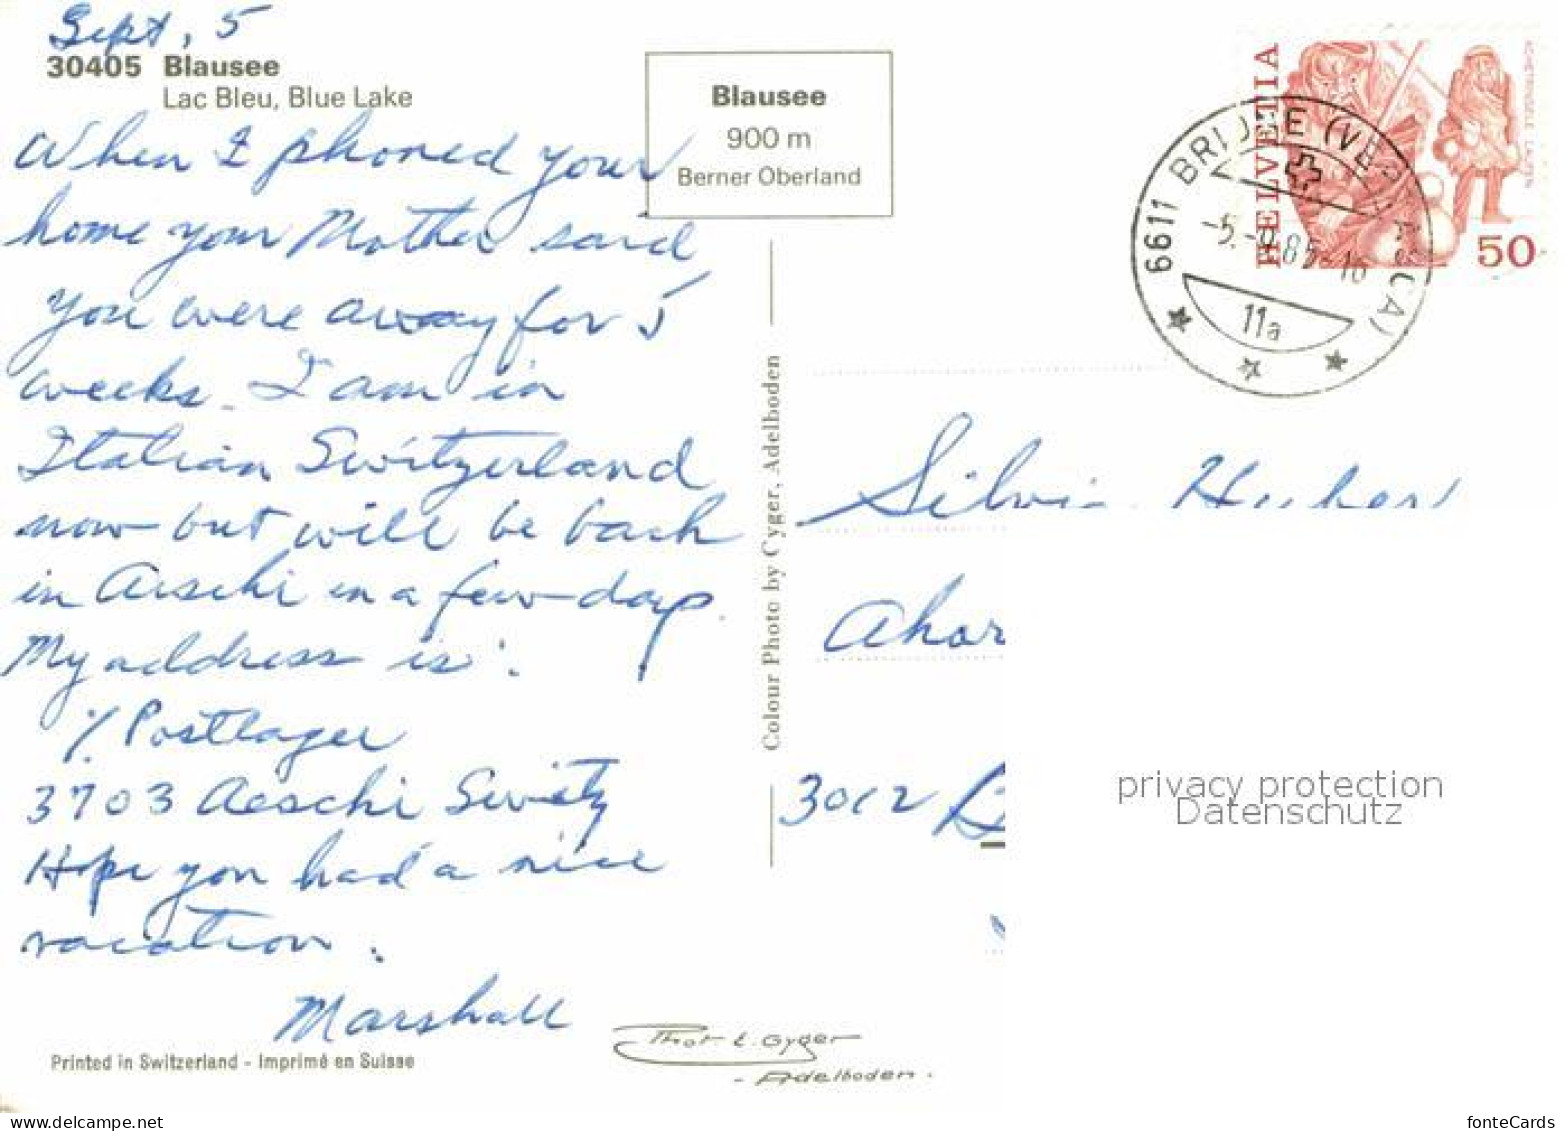 Sept, 5
30405 Blausee
Lac Bleu, Blue Lake
When I phoned your
home your Mother said
you were away for 5
weeks. I am in
Italian Switzerland
now but will be back
in Aeschi in a few days.
My address is:
% Postlager
3703 Aeschi Switz
Hope you had a nice
vacation.
Marshall
Printed in Switzerland - Imprimé en Suisse
Blausee
900 m
Berner Oberland
Colour Photo by Gyger, Adelboden
Phot. E. Gyger
- Adelboden -
HELVETIA
50
6611 BRI
-5.-9.85-16
11a
Silvia
Ahor
3012
privacy protection
Datenschutz
www.delcampe.net
fonteCards